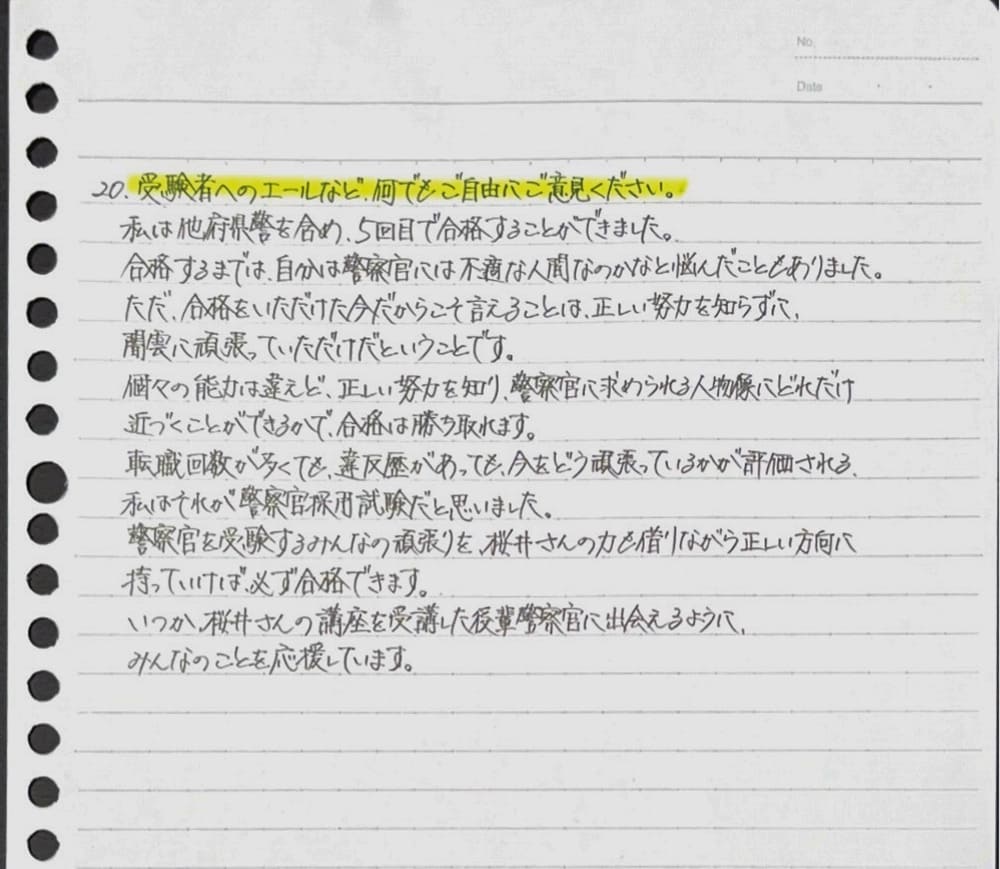 No.
Date
20. 受験者へのエールなど、何でもご自由にご意見ください。
私は他府県警を含め、5回目で合格することができました。
合格するまでは、自分は警察官には不適な人間なのかなと悩んだこともありました。
ただ、合格をいただけた今だからこそ言えることは、正しい努力を知らずに、
闇雲に頑張っていただけだということです。
個々の能力は違えど、正しい努力を知り、警察官に求められる人物像にどれだけ
近づくことができるかで、合格は勝ち取れます。
転職回数が多くても、違反歴があっても、今をどう頑張っているかが評価される、
私はそれが警察官採用試験だと思いました。
警察官を受験するみんなの頑張りを、桜井さんの力も借りながら正しい方向に
持っていけば、必ず合格できます。
いつか、桜井さんの講座を受講した後輩警察官に出会えるように、
みんなのことを応援しています。